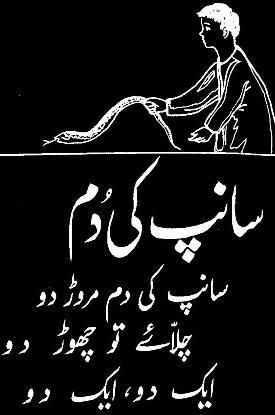 سانپ کی دُم
سانپ کی دم مروڑ دو
چلّائے تو چھوڑ دو
ایک دو، ایک دو